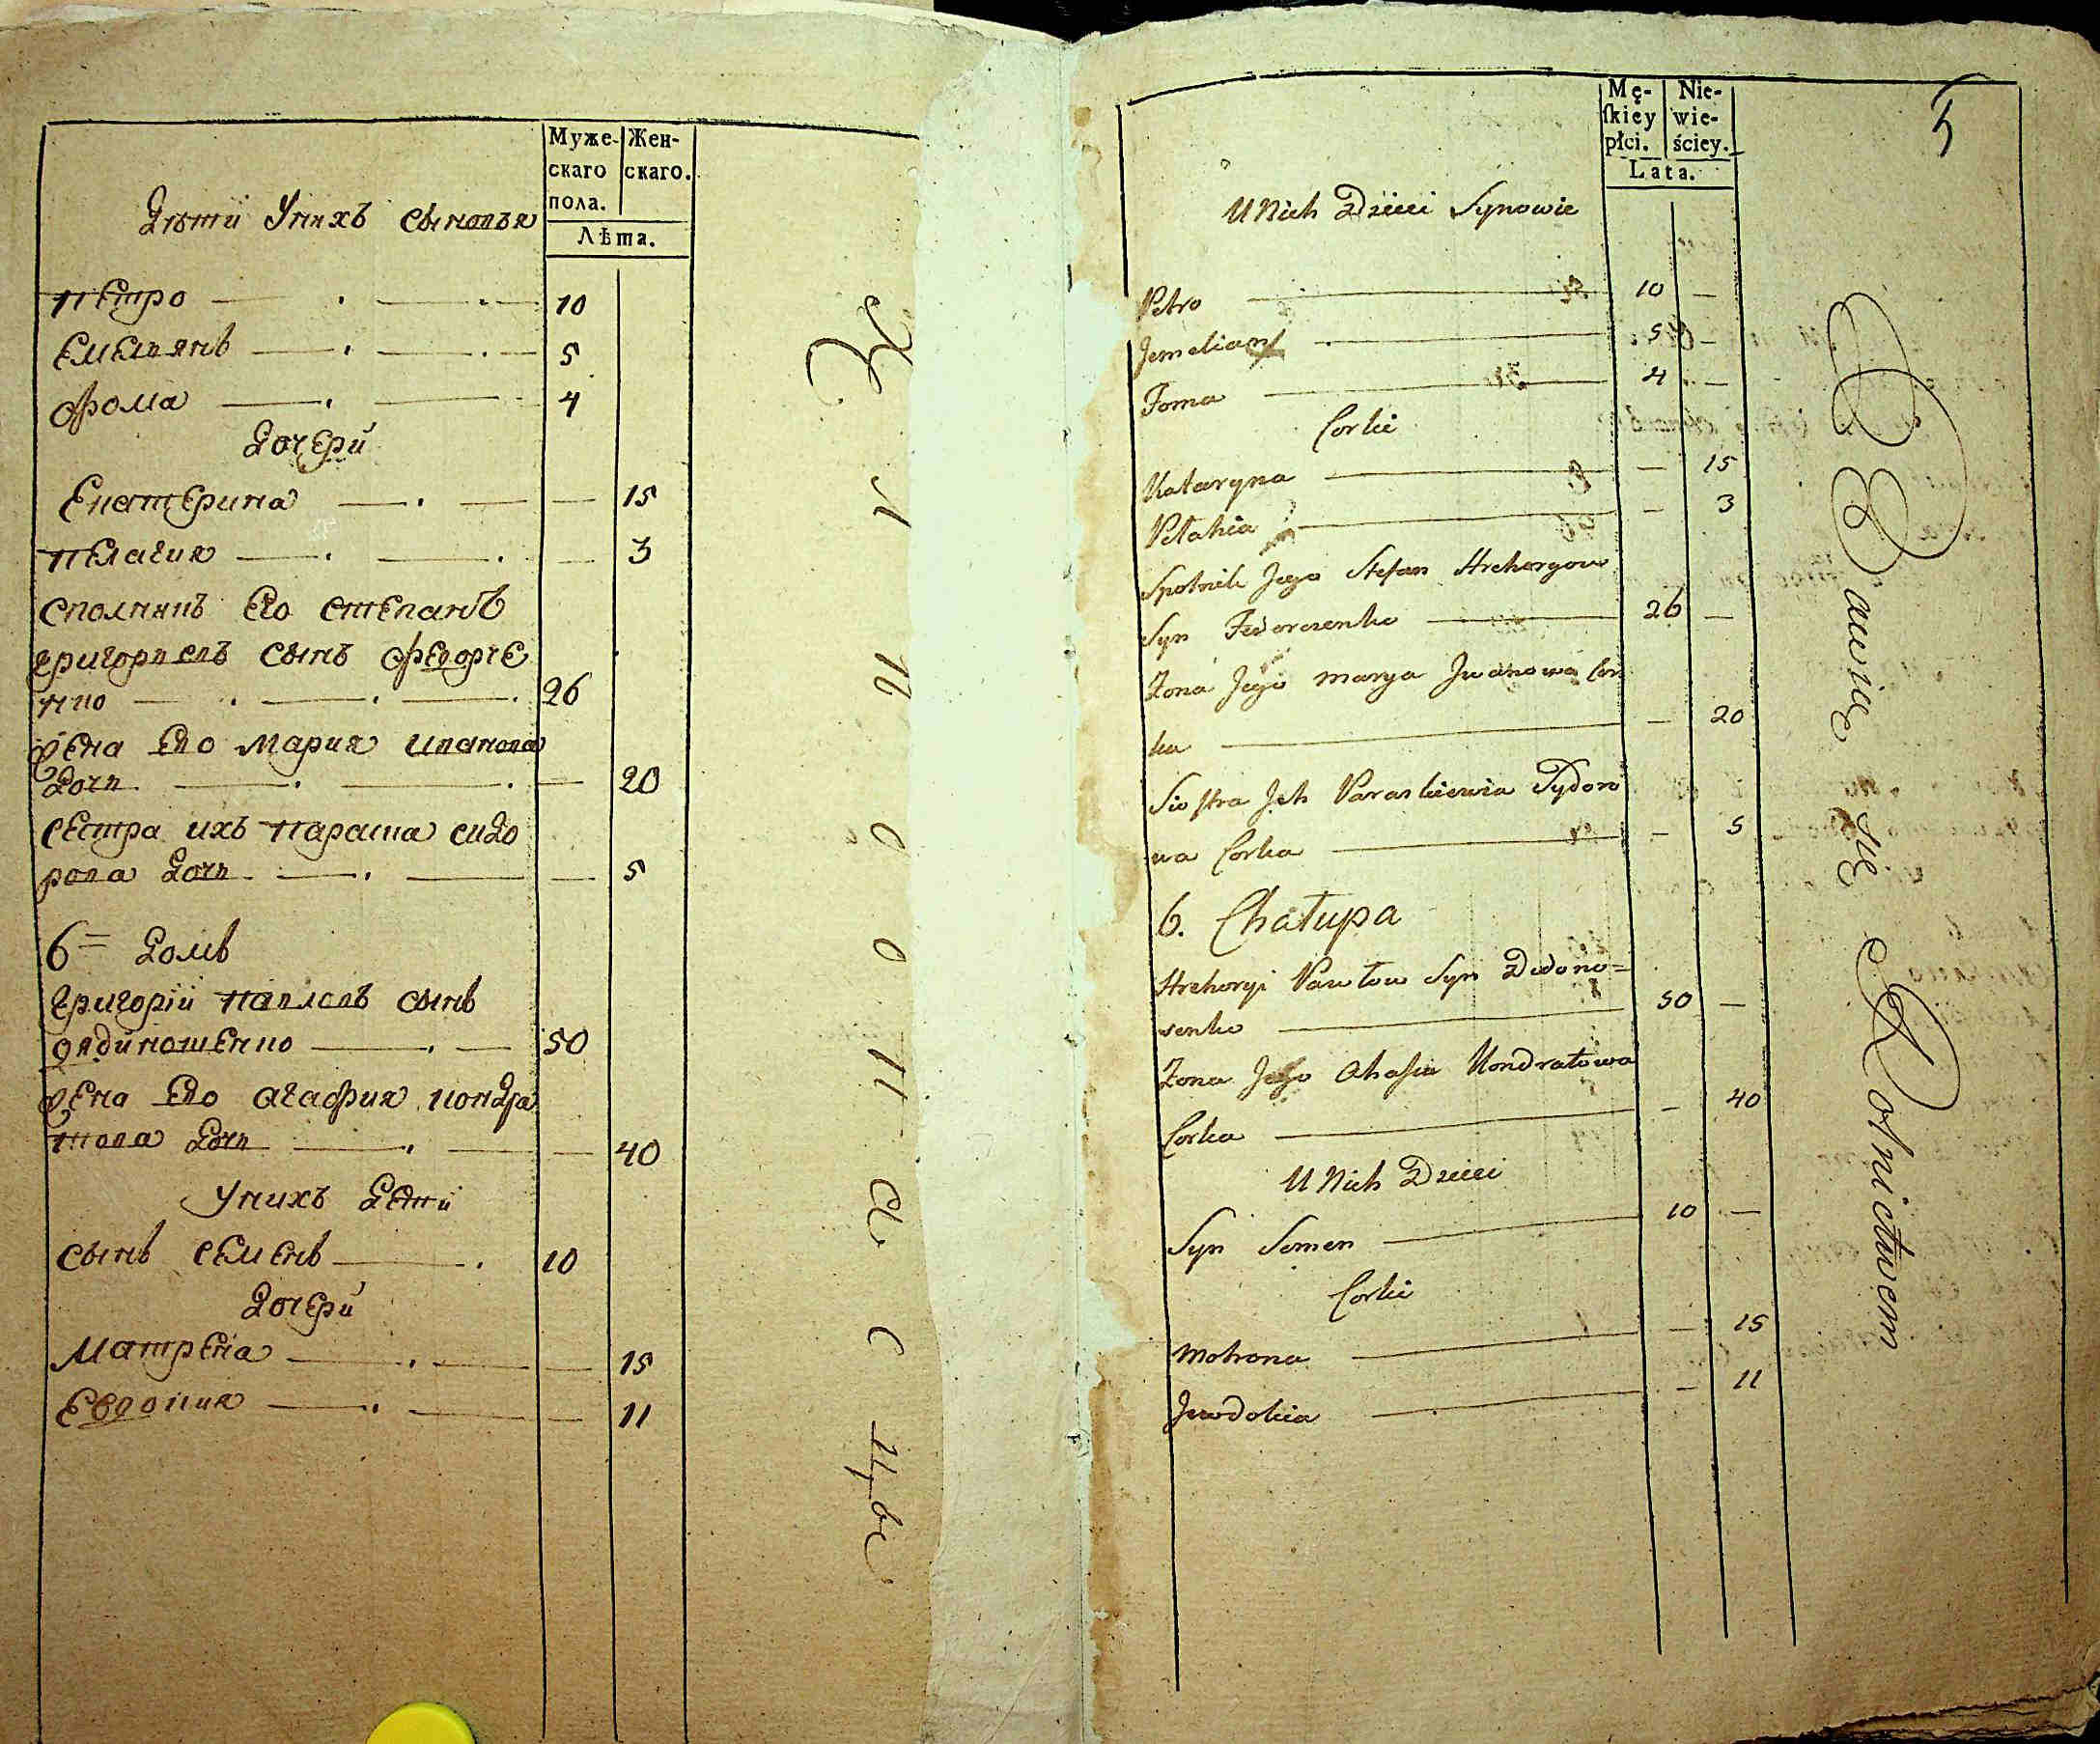 Муже- Жен-
скаго скаго.
пола.
Лѣта.
Дѣти У нихъ сыновья
Петро 10
Емельянъ 5
Фома 4
Дочери
Екатерина — 15
Пелагия — 3
Сполникъ Его Степанъ
Григорьевъ сынъ Федорче
нко 26
Жена Его Мария Иванова
Дочь — 20
Сестра ихъ Параска Сидо
рова Дочь — 5
6= Домъ
Григорий Павловъ сынъ
50
Жена Его Агафия Кондра
това Дочь — 40
У нихъ Дети
Сынъ Семенъ 10
Дочери
Матрена — 15
Евдокия — 11
5
Mę- Nie-
ſkiey wie-
płci. ściey.
Lata.
U Nich Dzieci Synowie
Petro 10 —
Jemelian 5 —
Foma 4 —
Corki
Kataryna — 15
Pełahia — 3
Spolnik Jego Stefan Hrehoryow
Syn Fedorczenko 26 —
Zona Jego Marya Jwanowa Cor
ka — 20
Siostra Jch Paraskiewia Sydoro
wa Corka — 5
6. Chałupa
Hrehoryi Pawłow Syn Dwdono=
szenko 50 —
Zona Jego Ahafia Kondratowa
Corka — 40
U Nich Dzieci
Syn Semen 10 —
Corki
Motrona — 15
Jewdokia — 11
Bawią się Rolnictwem